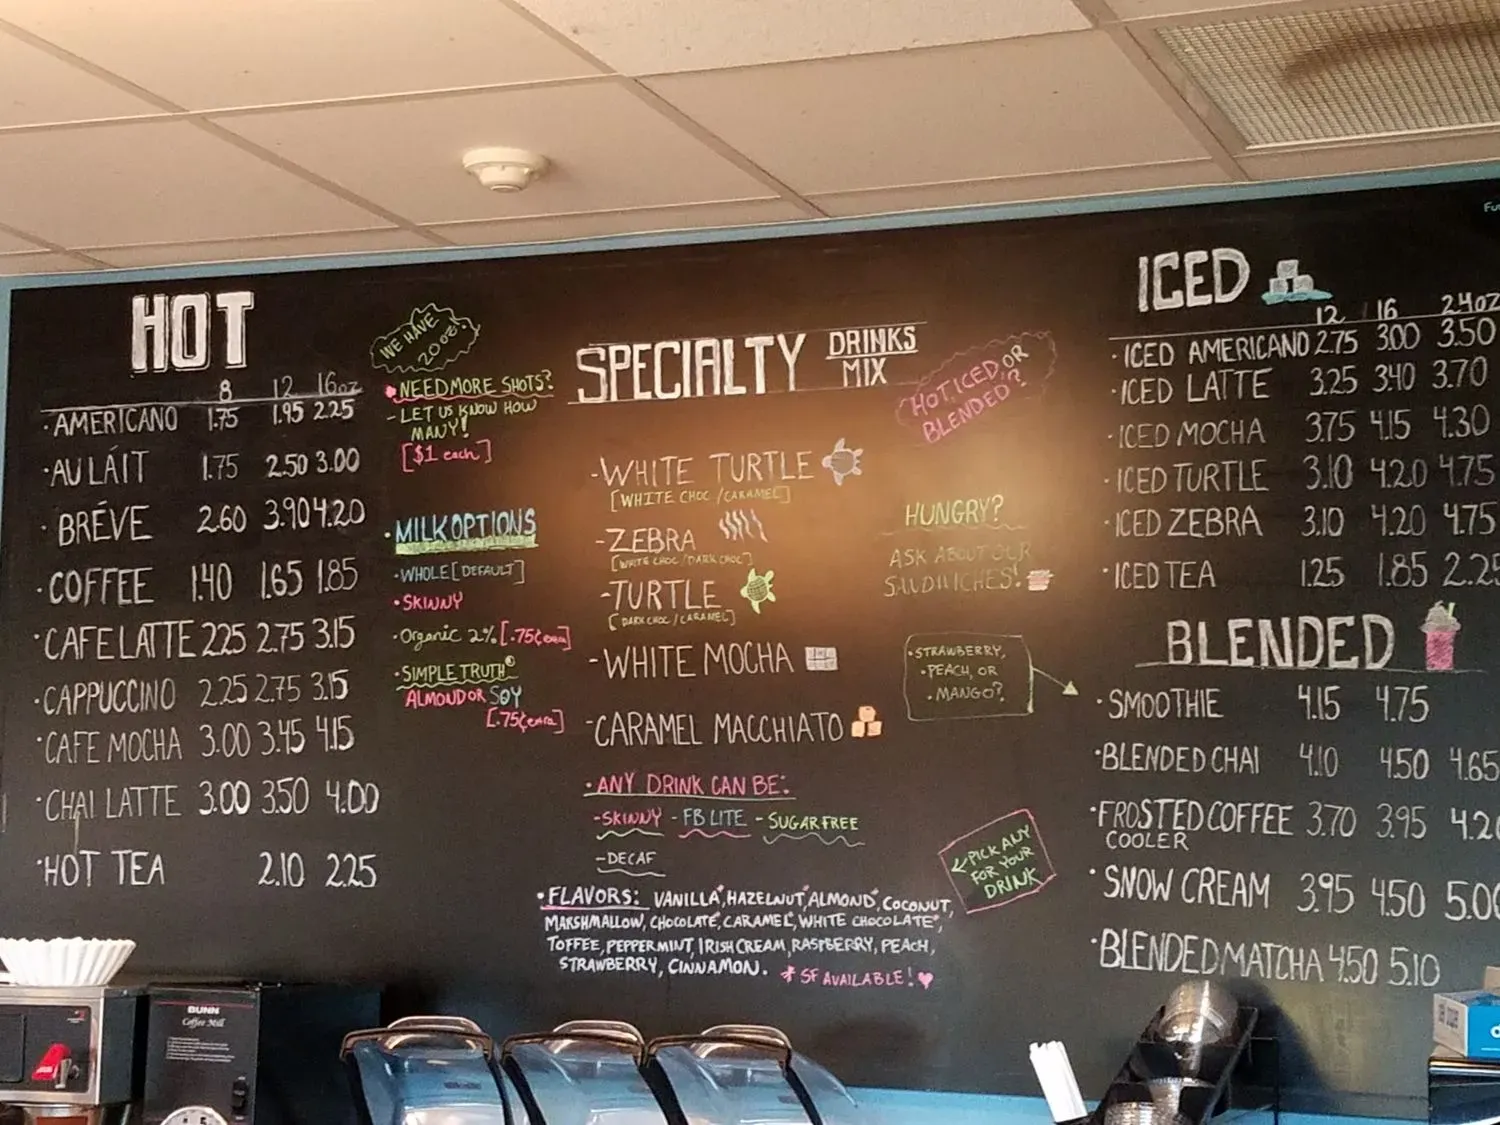 HOT
8 12 16oz
· AMERICANO 1.75 1.95 2.25
· AU LÁIT 1.75 2.50 3.00
· BRÉVE 2.60 3.90 4.20
· COFFEE 1.40 1.65 1.85
· CAFE LATTE 2.25 2.75 3.15
· CAPPUCCINO 2.25 2.75 3.15
· CAFE MOCHA 3.00 3.45 4.15
· CHAI LATTE 3.00 3.50 4.00
· HOT TEA 2.10 2.25
WE HAVE
20oz!
· NEED MORE SHOTS?
- LET US KNOW HOW
MANY!
[$1 each]
· MILK OPTIONS
· WHOLE [DEFAULT]
· SKINNY
· Organic 2% [.75¢ extra]
· SIMPLE TRUTH®
ALMOND OR SOY
[.75¢ extra]
SPECIALTY DRINKS
MIX
HOT, ICED, OR
BLENDED?
- WHITE TURTLE
[WHITE CHOC / CARAMEL]
- ZEBRA
[WHITE CHOC / DARK CHOC]
- TURTLE
[DARK CHOC / CARAMEL]
- WHITE MOCHA
- CARAMEL MACCHIATO
· ANY DRINK CAN BE:
- SKINNY - FB LITE - SUGAR FREE
- DECAF
· FLAVORS: VANILLA*, HAZELNUT*, ALMOND*, COCONUT,
MARSHMALLOW, CHOCOLATE*, CARAMEL*, WHITE CHOCOLATE*,
TOFFEE, PEPPERMINT, IRISH CREAM, RASPBERRY, PEACH,
STRAWBERRY, CINNAMON. * SF AVAILABLE!
HUNGRY?
ASK ABOUT OUR
SANDWICHES!
· STRAWBERRY,
· PEACH, OR
· MANGO?
PICK ANY
FOR YOUR
DRINK
ICED
12 16 24oz
· ICED AMERICANO 2.75 3.00 3.50
· ICED LATTE 3.25 3.40 3.70
· ICED MOCHA 3.75 4.15 4.30
· ICED TURTLE 3.10 4.20 4.75
· ICED ZEBRA 3.10 4.20 4.75
· ICED TEA 1.25 1.85 2.25
BLENDED
· SMOOTHIE 4.15 4.75
· BLENDED CHAI 4.10 4.50 4.65
· FROSTED COFFEE 3.70 3.95 4.20
COOLER
· SNOW CREAM 3.95 4.50 5.00
· BLENDED MATCHA 4.50 5.10
BUNN
Coffee Mill